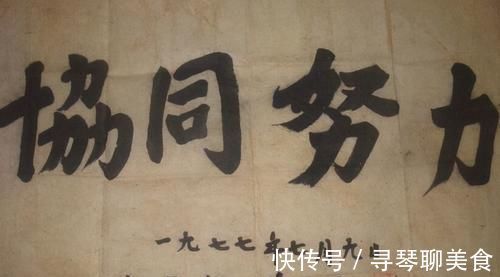 協同努力
一九七七年七月九日
快传号/寻琴聊美食